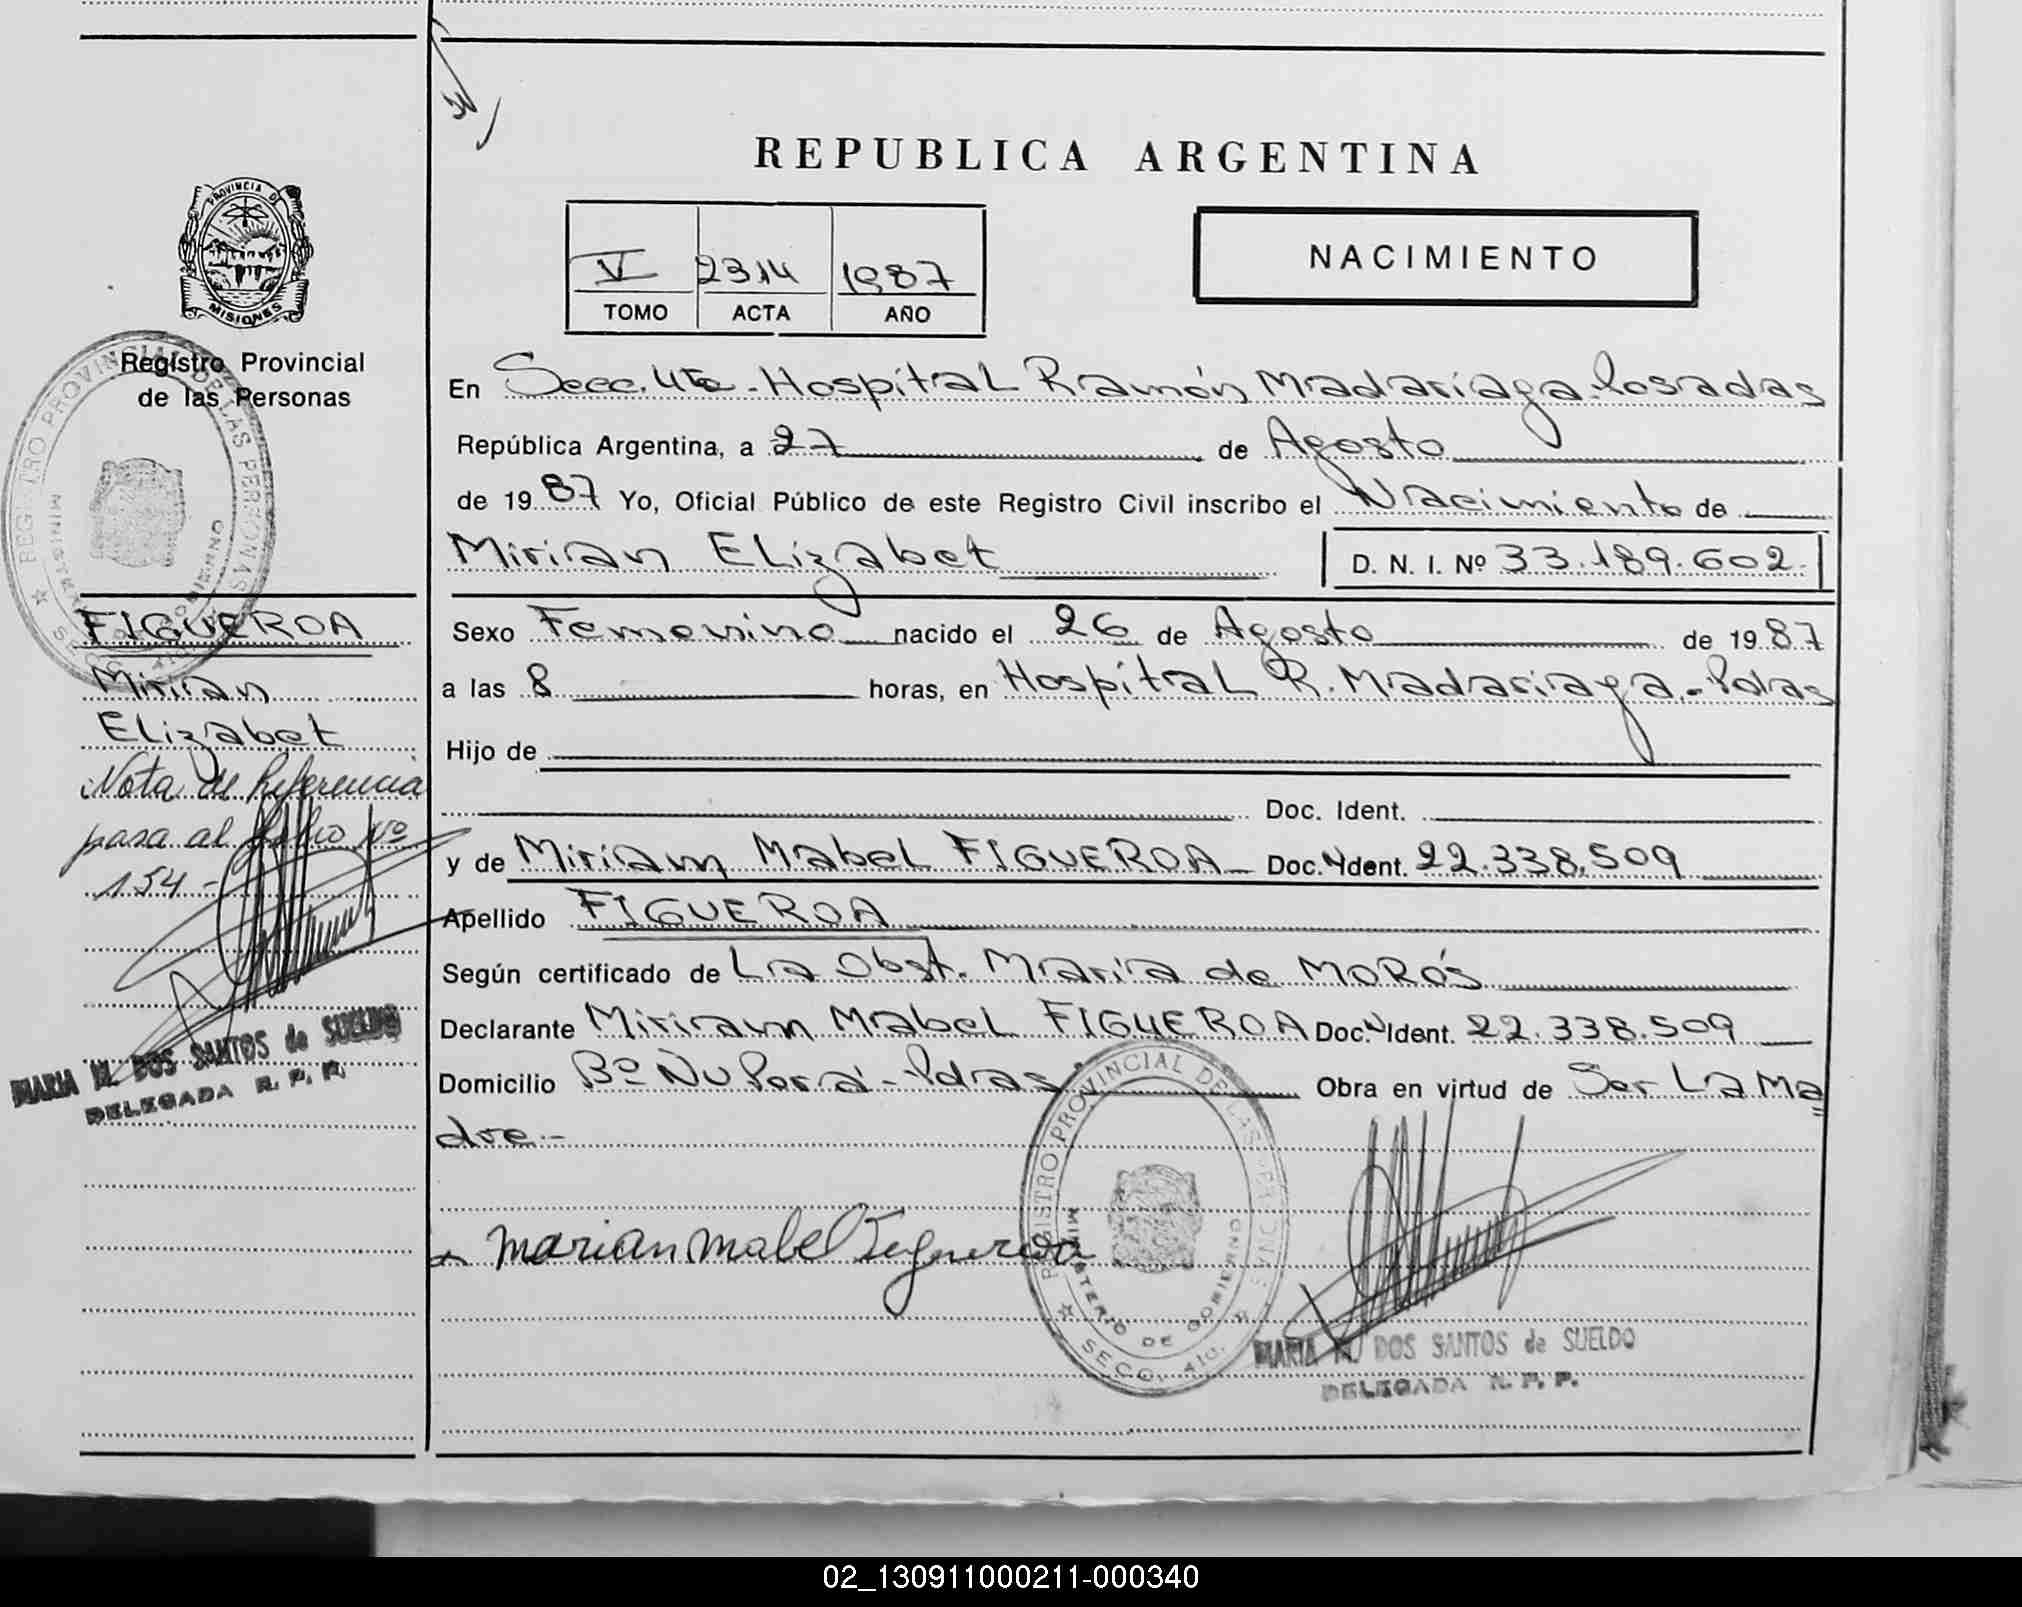 REPUBLICA ARGENTINA
PROVINCIA DE
MISIONES
Registro Provincial
de las Personas
V 2314 1987
TOMO ACTA AÑO
NACIMIENTO
En Secc. 4ta - Hospital Ramón Madariaga - Posadas
República Argentina, a 27 de Agosto
de 1987 Yo, Oficial Público de este Registro Civil inscribo el Nacimiento de
Mirian Elizabet D. N. I. Nº 33.189.602
Sexo Femenino nacido el 26 de Agosto de 1987
a las 8 horas, en Hospital R. Madariaga - Pdas
Hijo de
Doc. Ident.
y de Miriam Mabel FIGUEROA Doc. N Ident. 22.338.509
Apellido FIGUEROA
Según certificado de La Obst. María de MORÓS
Declarante Miriam Mabel FIGUEROA Doc. N Ident. 22.338.509
Domicilio Bº Ñu Porá - Pdas Obra en virtud de Ser La Ma=
dre.-
marian mabel Figueroa
REGISTRO PROVINCIAL DE LAS PERSONAS
MINISTERIO DE GOBIERNO
SECC. 4ta.
MARIA M. DOS SANTOS de SUELDO
DELEGADA R. P. P.
FIGUEROA
Mirian
Elizabet
Nota de Referencia
pasa al folio Nº
154 -
REGISTRO PROVINCIAL DE LAS PERSONAS
MINISTERIO DE GOBIERNO
SECC. 4ta.
MARIA M. DOS SANTOS de SUELDO
DELEGADA R. P. P.
02_130911000211-000340